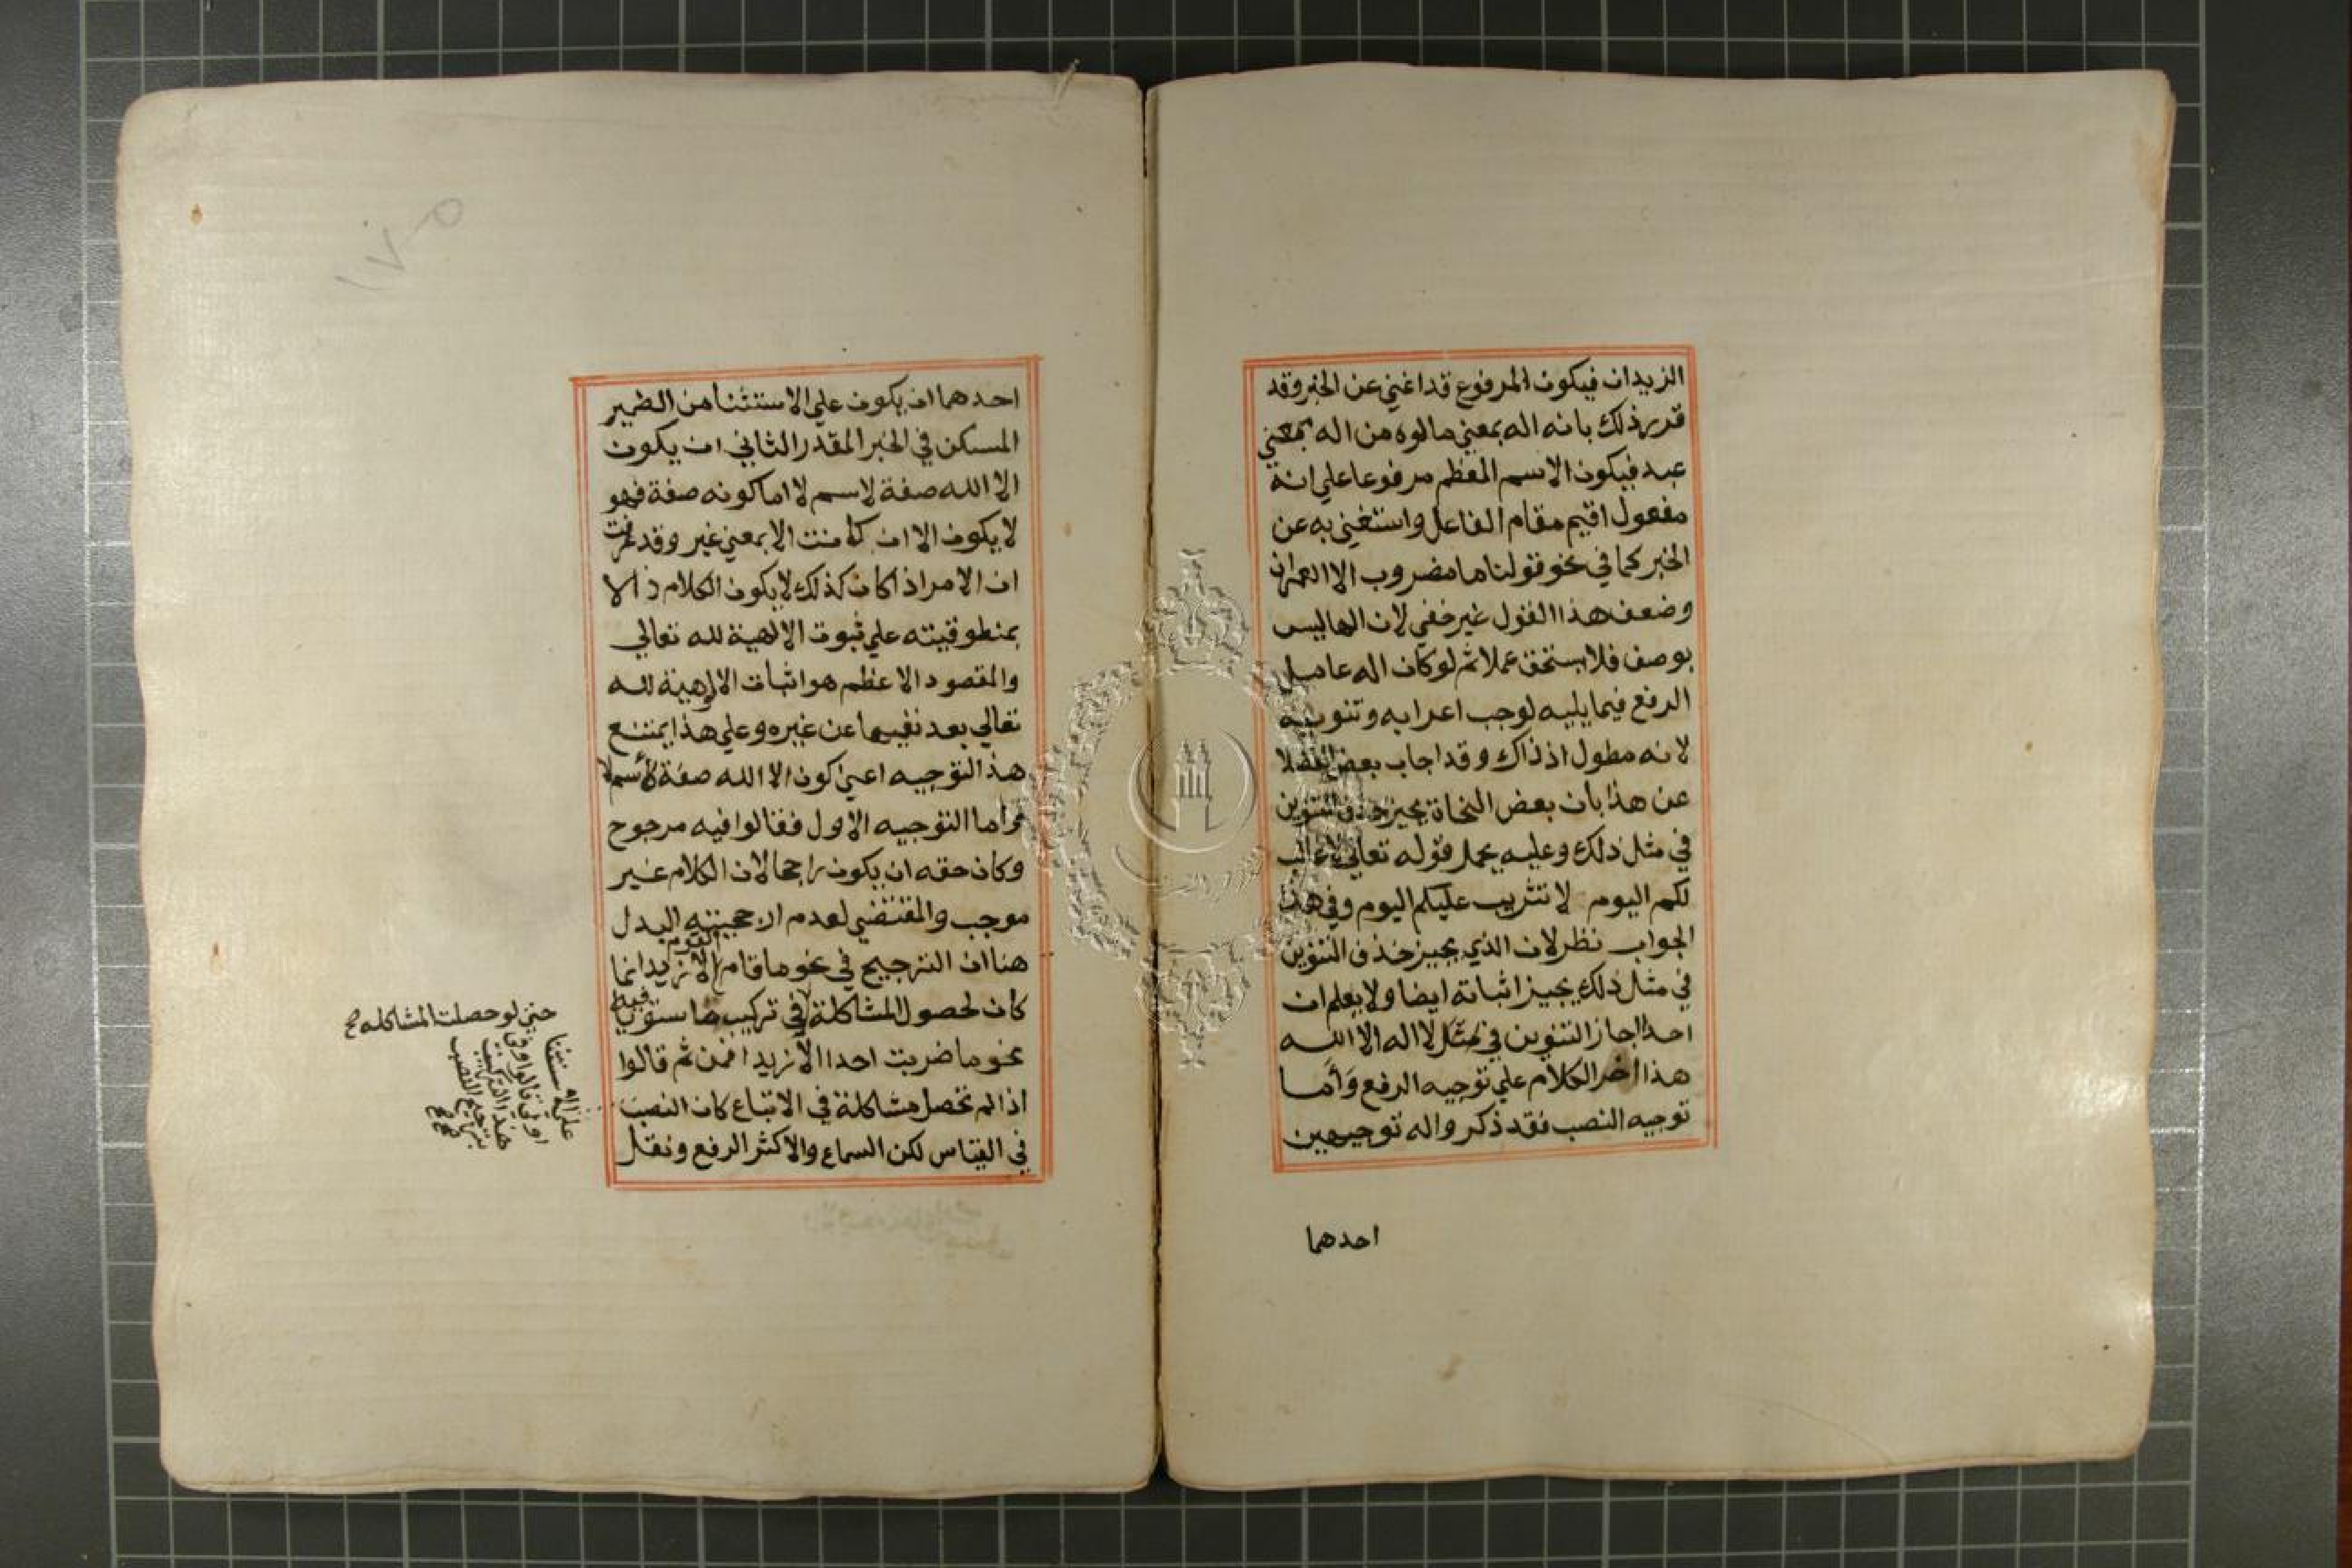 الزيدان فيكون المرفوع قد اغني عن الخبر وقد
قدر ذلك بانه اله بمعني مالوه من اله بمعني
عبد فيكون الاسم المعظم مرفوعا علي انه
مفعول اقيم مقام الفاعل واستغني به عن
الخبر كما في نحو قولنا ما مضروب الا العمران
وضعف هذا القول غير خفي لان الها ليس
بوصف فلا يستحق عملا ثم لو كان اله عامل
الرفع فيما يليه لوجب اعرابه وتنوينه
لانه مطول اذ ذاك وقد اجاب بعض الفضلا
عن هذا بان بعض النحاة يجيز حذف التنوين
في مثل ذلك وعليه يحمل قوله تعالي لا غالب
لكم اليوم لا تثريب عليكم اليوم وفي هذا
الجواب نظر لان الذي يجيز حذف التنوين
في مثل ذلك يجيز اثباته ايضا ولا يعلم ان
احدا اجاز التنوين في مثل لا اله الا الله
هذا اخر الكلام علي توجيه الرفع وَأما
توجيه النصب فقد ذكر واله توجيهين
احدهما
١٧٥
احدهما ان يكون علي الاستثنا من الضمير
المستكن في الخبر المقدر الثاني ان يكون
الا الله صفة لاسم لا اما كونه صفة فهو
لا يكون الا ان كانت الا بمعني غير وقد عرفت
ان الامر اذا كان كذلك لا يكون الكلام دالا
بمنطوقيته علي ثبوت الالهية لله تعالي
والمقصود الاعظم هو اثبات الالهية لله
تعالي بعد نفيها عن غيره وعلي هذا يمتنع
هذا التوجيه اعني كون الا الله صفة لاسم لا
واما التوجيه الاول فقالوا فيه مرجوح
وكان حقه ان يكون راجحا لان الكلام غير
موجب والمقتضي لعدم ارجحيته البدل
هنا ان الترجيح في نحو ما قام القوم الا زيد انما
كان لحصول المشاكلة في تركيب ما استوتا فيه
نحو ما ضربت احدا الا زيدا فمن ثم قالوا
اذا لم تحصل مشاكلة في الاتباع كان النصب
في القياس لكن السماع والاكثر الرفع ونقل
حتي لو حصلت المشاكله صح
علي الاستثنا
اولي قالوا وفي
هذا التركيب
يترجح النصب